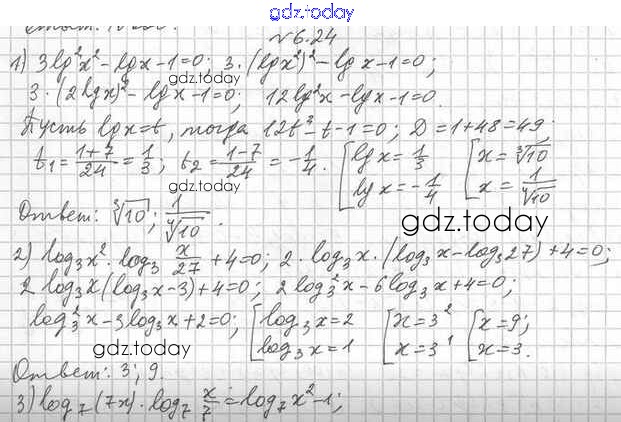 gdz.today
№ 6.24
1) 3lg²x² - lgx - 1 = 0; 3·(lgx²)² - lgx - 1 = 0;
gdz.today
3·(2lgx)² - lgx - 1 = 0; 12lg²x - lgx - 1 = 0.
Пусть lgx = t, тогда 12t² - t - 1 = 0; D = 1 + 48 = 49;
t₁ = (1+7)/24 = 1/3; t₂ = (1-7)/24 = -1/4. [lgx = 1/3 [x = ∛10
gdz.today
[lgx = -1/4 [x = 1/∜10
Ответ: ∛10; 1/∜10.
gdz.today
2) log₃x²·log₃ x/27 + 4 = 0; 2·log₃x·(log₃x - log₃27) + 4 = 0;
2log₃x(log₃x - 3) + 4 = 0; 2log₃²x - 6log₃x + 4 = 0;
log₃²x - 3log₃x + 2 = 0; [log₃x = 2 [x = 3² [x = 9;
[log₃x = 1 [x = 3¹ [x = 3.
gdz.today
Ответ: 3; 9.
3) log₇(7x)·log₇ x/7 = log₇x² - 1;